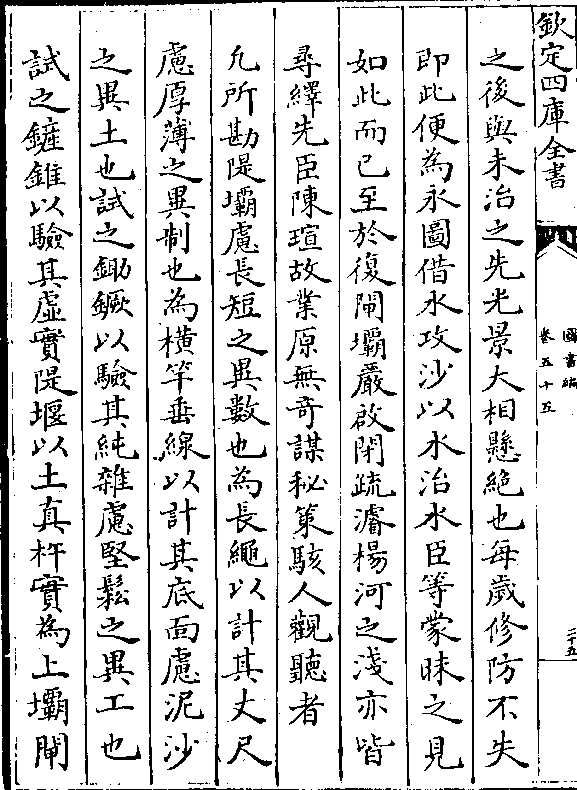 欽定四庫全書
圖書編
卷五十五
三十五
之後與未治之先光景大相懸絶也每歲修防不失
即此便為永圖借水攻沙以水治水臣等蒙昧之見
如此而已至於復閘壩嚴啟閉疏濬楊河之淺亦皆
尋繹先臣陳瑄故業原無奇謀秘策駭人觀聽者
凡所勘隄壩慮長短之異數也為長繩以計其丈尺
慮厚薄之異制也為橫竿垂線以計其底面慮泥沙
之異土也試之鋤鐝以驗其純雜慮堅鬆之異工也
試之鏟錐以驗其虛實隄堰以土真杵實為上壩閘